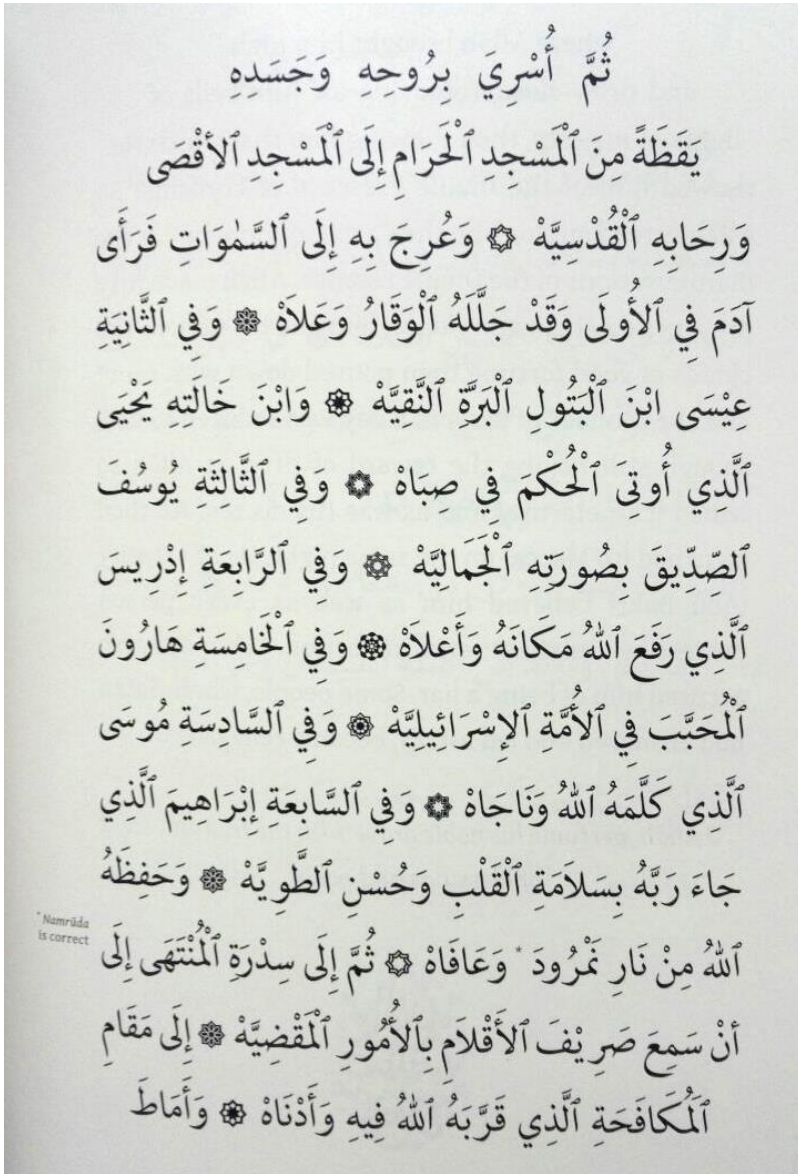 ثُمَّ أُسْرِيَ بِرُوحِهِ وَجَسَدِهِ
يَقَظَةً مِنَ ٱلْمَسْجِدِ ٱلْحَرَامِ إِلَى ٱلْمَسْجِدِ ٱلأَقْصَى
وَرِحَابِهِ ٱلْقُدْسِيَّهْ ۞ وَعُرِجَ بِهِ إِلَى ٱلسَّمٰوَاتِ فَرَأَى
آدَمَ فِي ٱلأُولَى وَقَدْ جَلَّلَهُ ٱلْوَقَارُ وَعَلاَهْ ۞ وَفِي ٱلثَّانِيَةِ
عِيْسَى ابْنَ ٱلْبَتُولِ ٱلْبَرَّةِ ٱلنَّقِيَّهْ ۞ وَابْنَ خَالَتِهِ يَحْيَى
ٱلَّذِي أُوتِىَ ٱلْحُكْمَ فِي صِبَاهْ ۞ وَفِي ٱلثَّالِثَةِ يُوسُفَ
ٱلصِّدِّيقَ بِصُورَتِهِ ٱلْجَمَالِيَّهْ ۞ وَفِي ٱلرَّابِعَةِ إِدْرِيسَ
ٱلَّذِي رَفَعَ ٱللهُ مَكَانَهُ وَأَعْلاَهْ ۞ وَفِي ٱلْخَامِسَةِ هَارُونَ
ٱلْمُحَبَّبَ فِي ٱلأُمَّةِ ٱلإِسْرَائِيلِيَّهْ ۞ وَفِي ٱلسَّادِسَةِ مُوسَى
ٱلَّذِي كَلَّمَهُ ٱللهُ وَنَاجَاهْ ۞ وَفِي ٱلسَّابِعَةِ إِبْرَاهِيمَ ٱلَّذِي
جَاءَ رَبَّهُ بِسَلاَمَةِ ٱلْقَلْبِ وَحُسْنِ ٱلطَّوِيَّهْ ۞ وَحَفِظَهُ
* Namrūda
is correct
ٱللهُ مِنْ نَارِ نَمْرُودَ * وَعَافَاهْ ۞ ثُمَّ إِلَى سِدْرَةِ ٱلْمُنْتَهَى إِلَى
أنْ سَمِعَ صَرِيْفَ ٱلأَقْلاَمِ بِٱلأُمُورِ ٱلْمَقْضِيَّهْ ۞ إِلَى مَقَامِ
ٱلْمُكَافَحَةِ ٱلَّذِي قَرَّبَهُ ٱللهُ فِيهِ وَأَدْنَاهْ ۞ وَأَمَاطَ